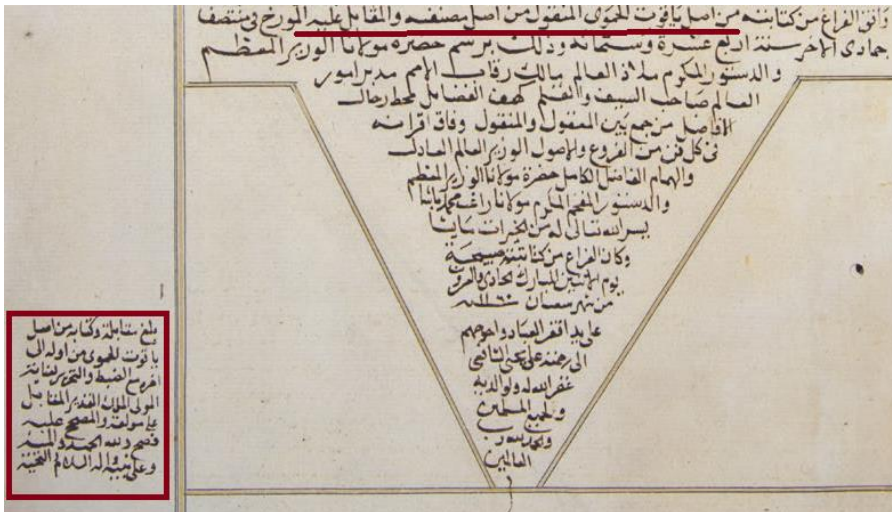 وافق الفراغ من كتابته من اصل ياقوت الحموى المنقول من اصل مصنفه والمقابل عليه المورخ فى منتصف
جمادى الاخر سنة اربع عشرة وستمائة وذلك برسم حضرة مولانا الوزير المعظم
والدستور المكرم ملاذ العالم مالك رقاب الامم مدبر امور
العالم صاحب السيف والقلم كهف الفضايل محط رحال
الافاضل من جمع بين المعقول والمنقول وفاق اقرانه
فى كل فن من الفروع والاصول الوزير العالم العادل
والهمام الفاضل الكامل حضرة مولانا الوزير المعظم
والدستور المفخم المكرم مولانا راغب محمد باشا
يسر الله تعالى له من الخيرات ما يشا
وكان الفراغ من كتابته صبيحة
يوم الاثنين المبارك الحادى والعشرون
من شهر شعبان ١١٦٠
على يد افقر العباد واحوجهم
الى رحمته على يحيى الشافعى
غفر الله له ولوالديه
ولجميع المسلمين
والحمد لله رب
العالمين
بلغ مقابلة وكتابه من اصل
ياقوت الحموى من اوله الى
اخره مع الضبط والتحرير
المقابل
على مولفه والمصحح عليه
فصح ولله الحمد والمنة
وعلى نبيه واله السلام والتحية